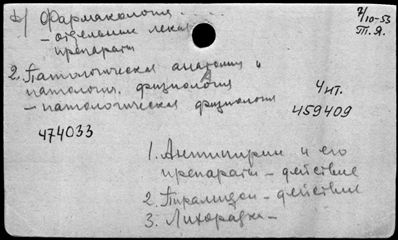 б) Фармакология . . .
- отдельные лекар
препараты
7/10-53
Т. Я.
2. Патологическая анатомия и
патология. физиология
- патологическая физиология
4 ит.
459409
474033
1. Антипирин и его
препараты - действие
2. - действие
3. Лихорадка -